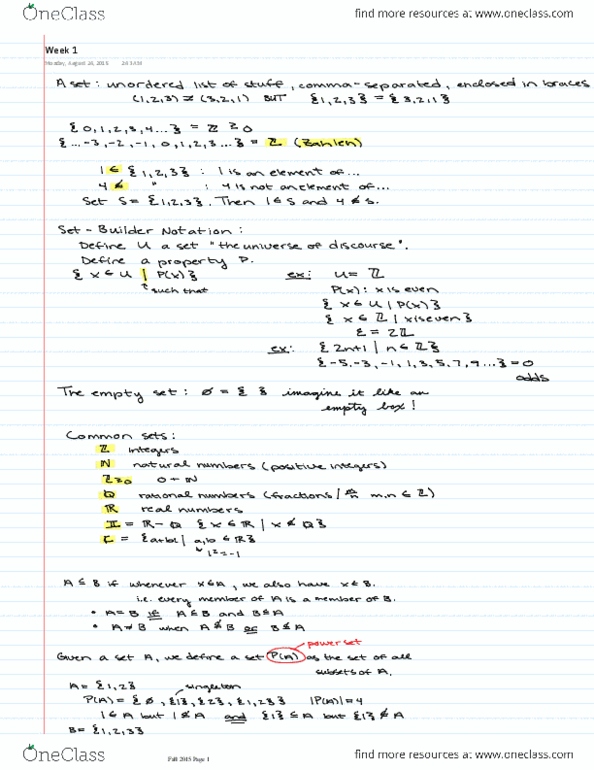 OneClass
find more resources at www.oneclass.com
Week 1
Monday, August 24, 2015
A set : unordered list of stuff, comma-separated, enclosed in braces
(1,2,3) ≠ (3,2,1) BUT {1,2,3} = {3,2,1}
{0,1,2,3,4...} = ℤ ≥0
{...-3,-2,-1,0,1,2,3...} = ℤ (Zahlen)
1 ∈ {1,2,3} : 1 is an element of...
4 ∉ " : 4 is not an element of...
Set S = {1,2,3}. Then 1 ∈ S and 4 ∉ S.
Set-Builder Notation :
Define U a set "the universe of discourse".
Define a property P.
{x ∈ U | P(x)}
such that
ex: U = ℤ
P(x): x is even
{x ∈ U | P(x)}
{x ∈ ℤ | x is even}
E = 2ℤ
ex: {2n+1 | n ∈ ℤ}
{-5,-3,-1,1,3,5,7,9...} = O
odds
The empty set : ∅ = { } imagine it like an
empty box!
Common sets :
ℤ integers
ℕ natural numbers (positive integers)
ℤ≥0 0 + ℕ
ℚ rational numbers (fractions / m/n m,n ∈ ℤ)
ℝ real numbers
𝕀 = ℝ - ℚ {x ∈ ℝ | x ∉ ℚ}
ℂ = {a+bi | a,b ∈ ℝ}
i²=-1
A ⊆ B if whenever x ∈ A, we also have x ∈ B.
i.e. every member of A is a member of B.
• A = B if A ⊆ B and B ⊆ A
• A ≠ B when A ⊈ B or B ⊈ A
power set
Given a set A, we define a set P(A) as the set of all
subsets of A.
A = {1,2}
singleton
P(A) = {∅, {1}, {2}, {1,2}} |P(A)| = 4
1 ∈ A but 1 ⊈ A and {1} ⊆ A but {1} ∉ A
B = {1,2,3}
Fall 2015 Page 1
OneClass
find more resources at www.oneclass.com